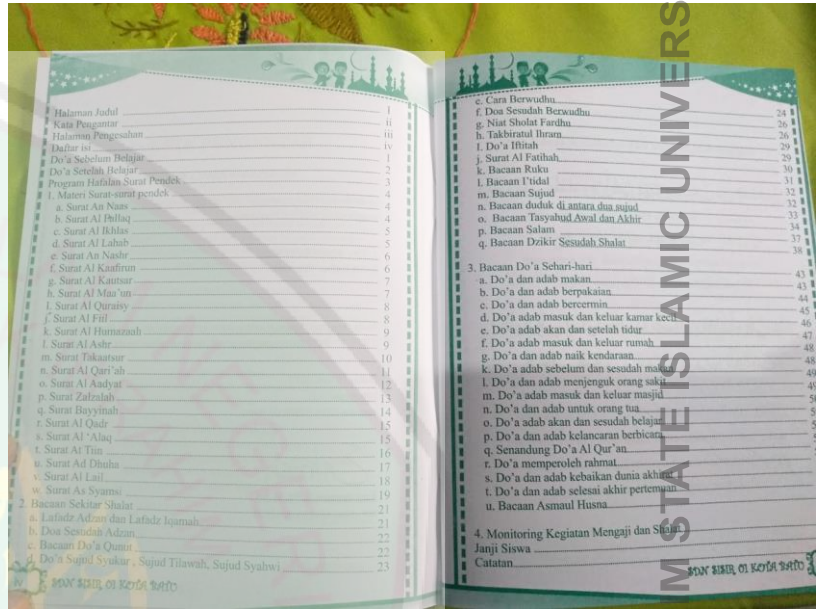 Halaman Judul i
Kata Pengantar ii
Halaman Pengesahan iii
Daftar isi iv
Do'a Sebelum Belajar 1
Do'a Setelah Belajar 2
Program Hafalan Surat Pendek 3
1. Materi Surat-surat pendek 4
a. Surat An Naas 4
b. Surat Al Fallaq 4
c. Surat Al Ikhlas 5
d. Surat Al Lahab 5
e. Surat An Nashr 6
f. Surat Al Kaafirun 6
g. Surat Al Kautsar 7
h. Surat Al Maa'un 7
I. Surat Al Quraisy 8
j. Surat Al Fiil 8
k. Surat Al Humazaah 9
l. Surat Al Ashr 9
m. Surat Takaatsur 10
n. Surat Al Qari'ah 11
o. Surat Al Aadyat 12
p. Surat Zalzalah 13
q. Surat Bayyinah 14
r. Surat Al Qadr 15
s. Surat Al 'Alaq 15
t. Surat At Tiin 16
u. Surat Ad Dhuha 17
v. Surat Al Lail 18
w. Surat As Syamsi 19
2. Bacaan Sekitar Shalat 21
a. Lafadz Adzan dan Lafadz Iqamah 21
b. Doa Sesudah Adzan 22
c. Bacaan Do'a Qunut 22
d. Do'a Sujud Syukur , Sujud Tilawah, Sujud Syahwi 23
iv SDN SISIR 01 KOTA BATU
e. Cara Berwudhu
f. Doa Sesudah Berwudhu 24
g. Niat Sholat Fardhu 26
h. Takbiratul Ihram 26
I. Do'a Iftitah 29
j. Surat Al Fatihah 29
k. Bacaan Ruku 30
l. Bacaan I'tidal 31
m. Bacaan Sujud 32
n. Bacaan duduk di antara dua sujud 32
o. Bacaan Tasyahud Awal dan Akhir 33
p. Bacaan Salam 34
q. Bacaan Dzikir Sesudah Shalat 37
38
3. Bacaan Do'a Sehari-hari
a. Do'a dan adab makan 43
b. Do'a dan adab berpakaian 43
c. Do'a dan adab bercermin 44
d. Do'a adab masuk dan keluar kamar kecil 45
e. Do'a adab akan dan setelah tidur 46
f. Do'a adab masuk dan keluar rumah 47
g. Do'a dan adab naik kendaraan 48
k. Do'a adab sebelum dan sesudah makan 48
l. Do'a dan adab menjenguk orang sakit
m. Do'a adab masuk dan keluar masjid
n. Do'a dan adab untuk orang tua
o. Do'a adab akan dan sesudah belajar
p. Do'a dan adab kelancaran berbicara
q. Senandung Do'a Al Qur'an
r. Do'a memperoleh rahmat
s. Do'a dan adab kebaikan dunia akhirat
t. Do'a dan adab selesai akhir pertemuan
u. Bacaan Asmaul Husna
4. Monitoring Kegiatan Mengaji dan Shalat
Janji Siswa
Catatan
SDN SISIR 01 KOTA BATU
M STATE ISLAMIC UNIVERS